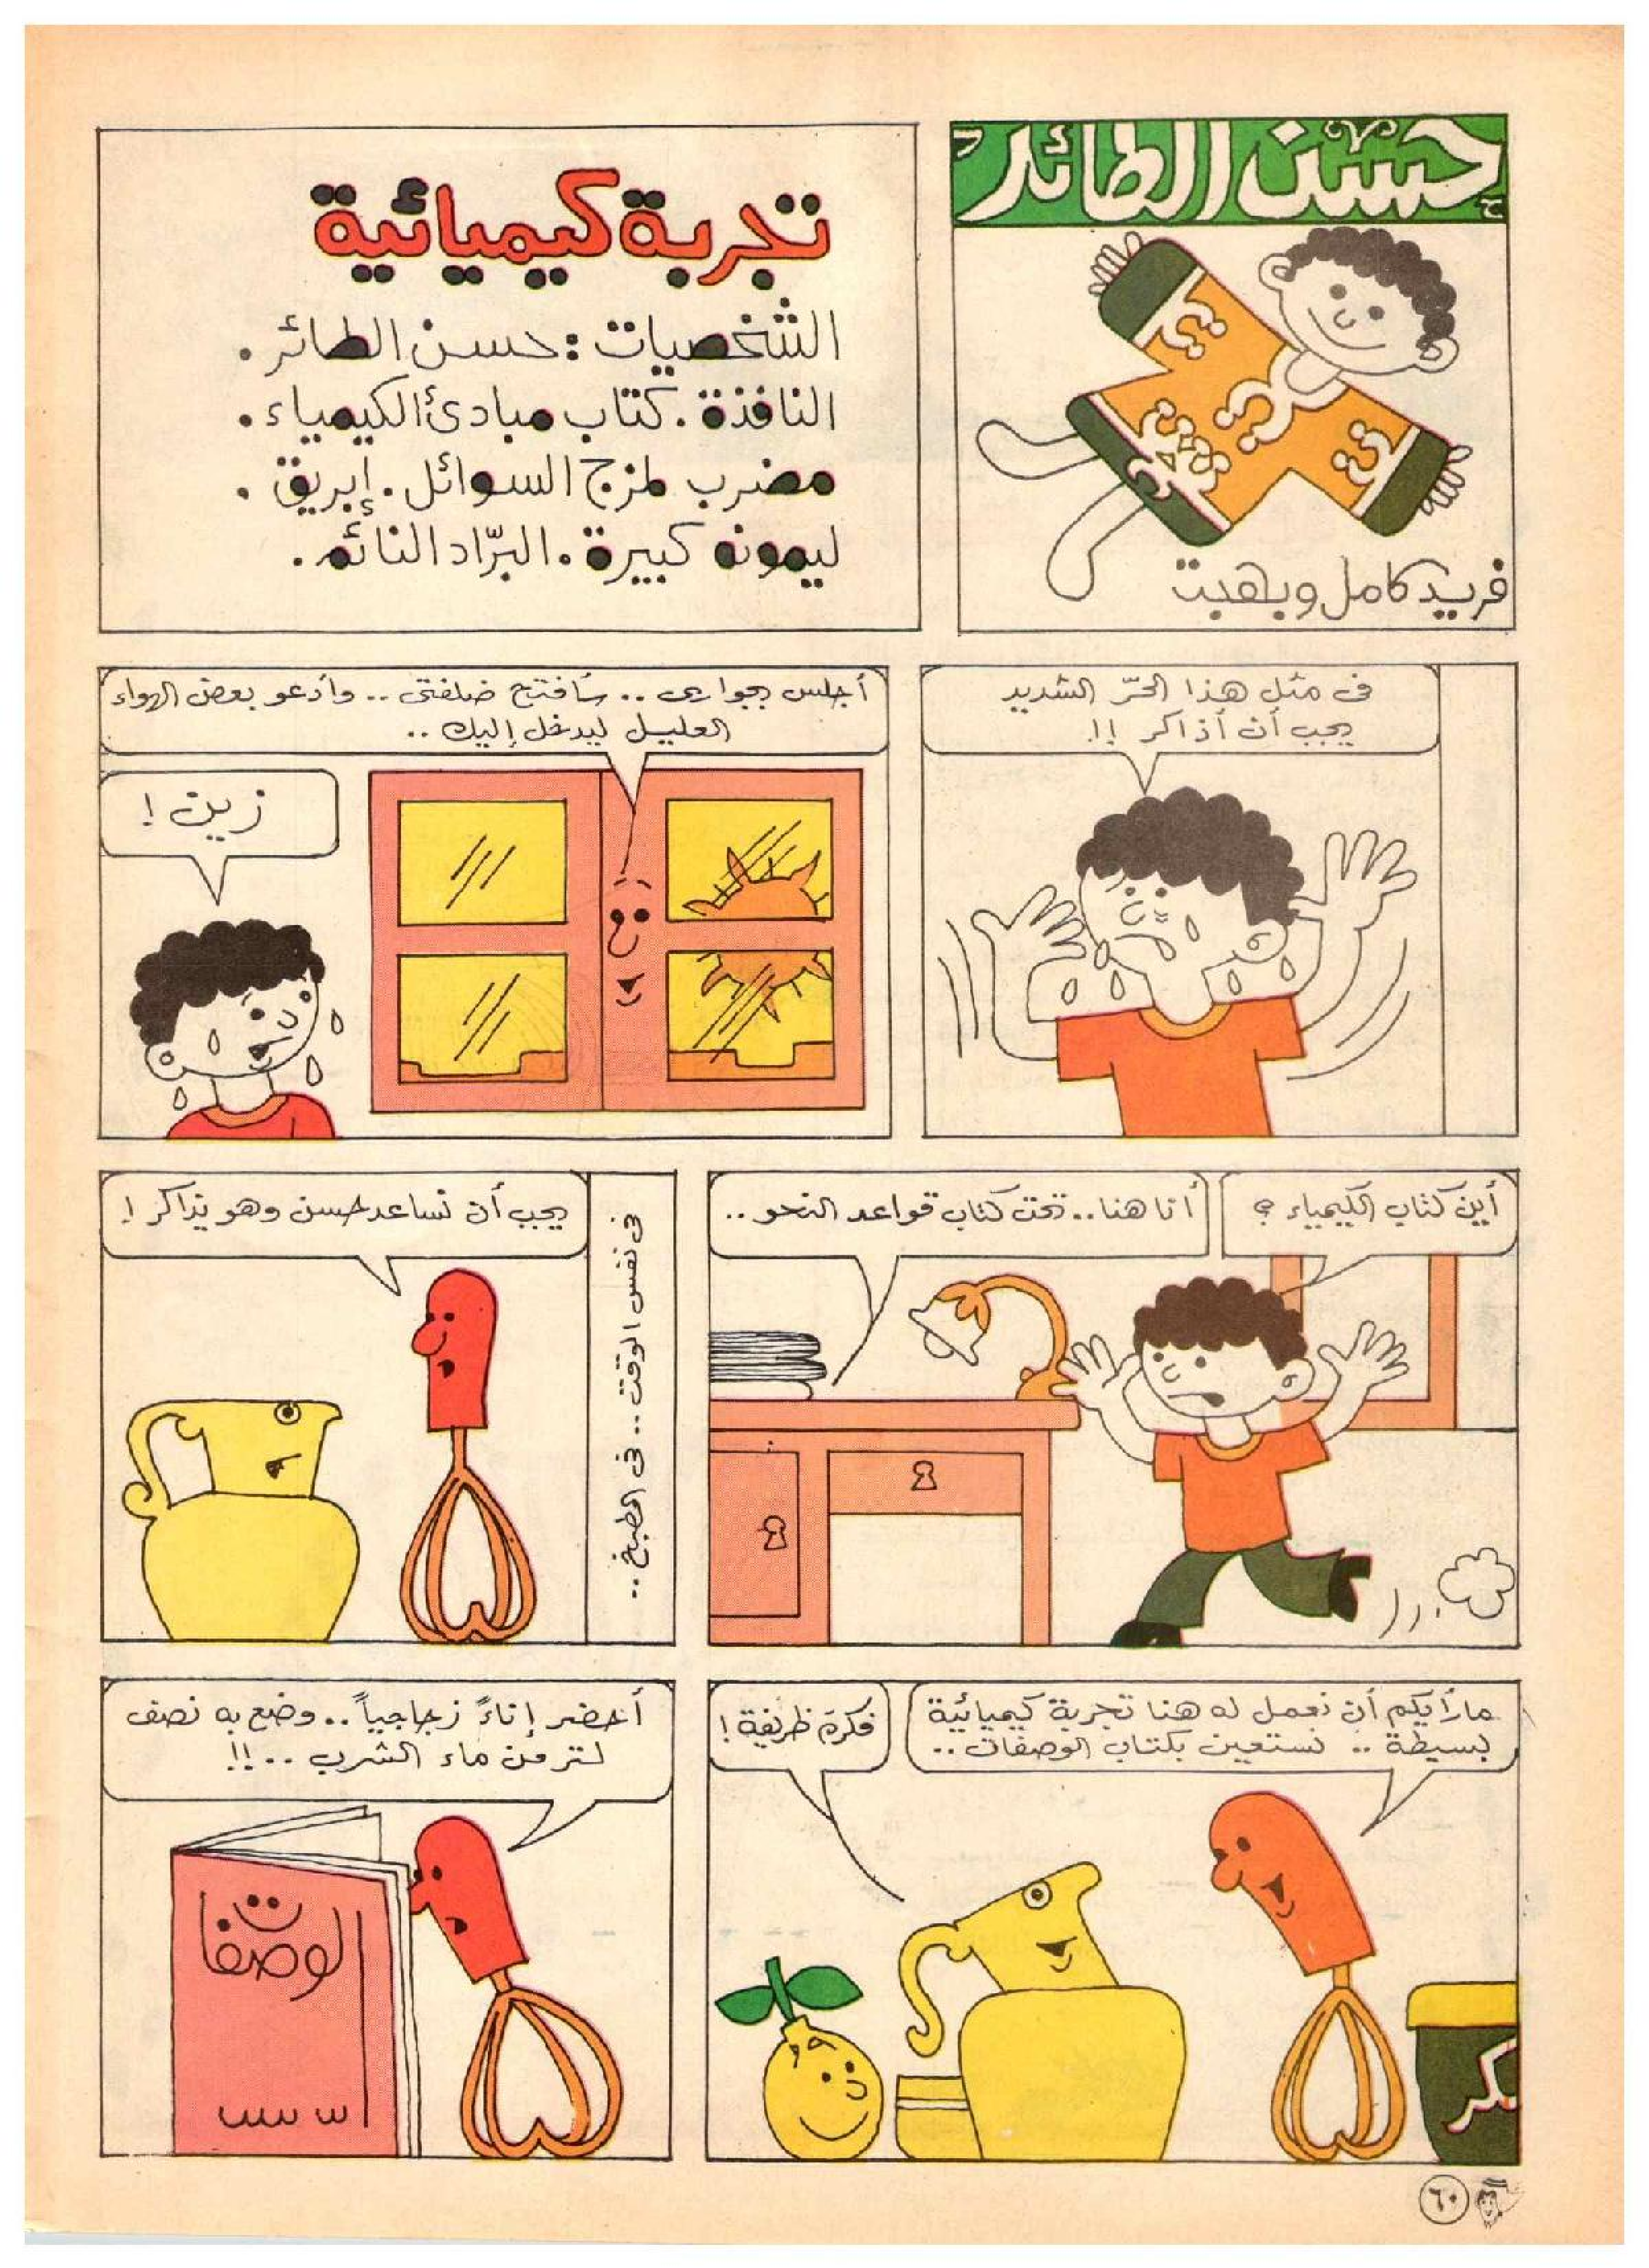 حسن الطائر
فريد كامل وبهجت
تجربة كيميائية
الشخصيات : حسن الطائر .
النافذة . كتاب مبادئ الكيمياء .
مضرب لمزج السوائل . إبريق .
ليمونه كبيرة . البرّاد النائم .
فى مثل هذا الحرّ الشديد
يجب أن أذاكر !!
أجلس بجوارى .. سأفتح ضلفتى .. وأدعو بعض الهواء
العليل ليدخل إليك ..
زين !
أين كتاب الكيمياء ؟
أنا هنا .. تحت كتاب قواعد النحو ..
فى نفس الوقت .. فى المطبخ ..
يجب أن نساعد حسن وهو يذاكر !
ما رأيكم أن نعمل له هنا تجربة كيميائية
بسيطة .. نستعين بكتاب الوصفات ..
فكرة ظريفة !
أحضر إناءً زجاجياً .. وضع به نصف
لتر من ماء الشرب .. !!
الوصفات
٦٠